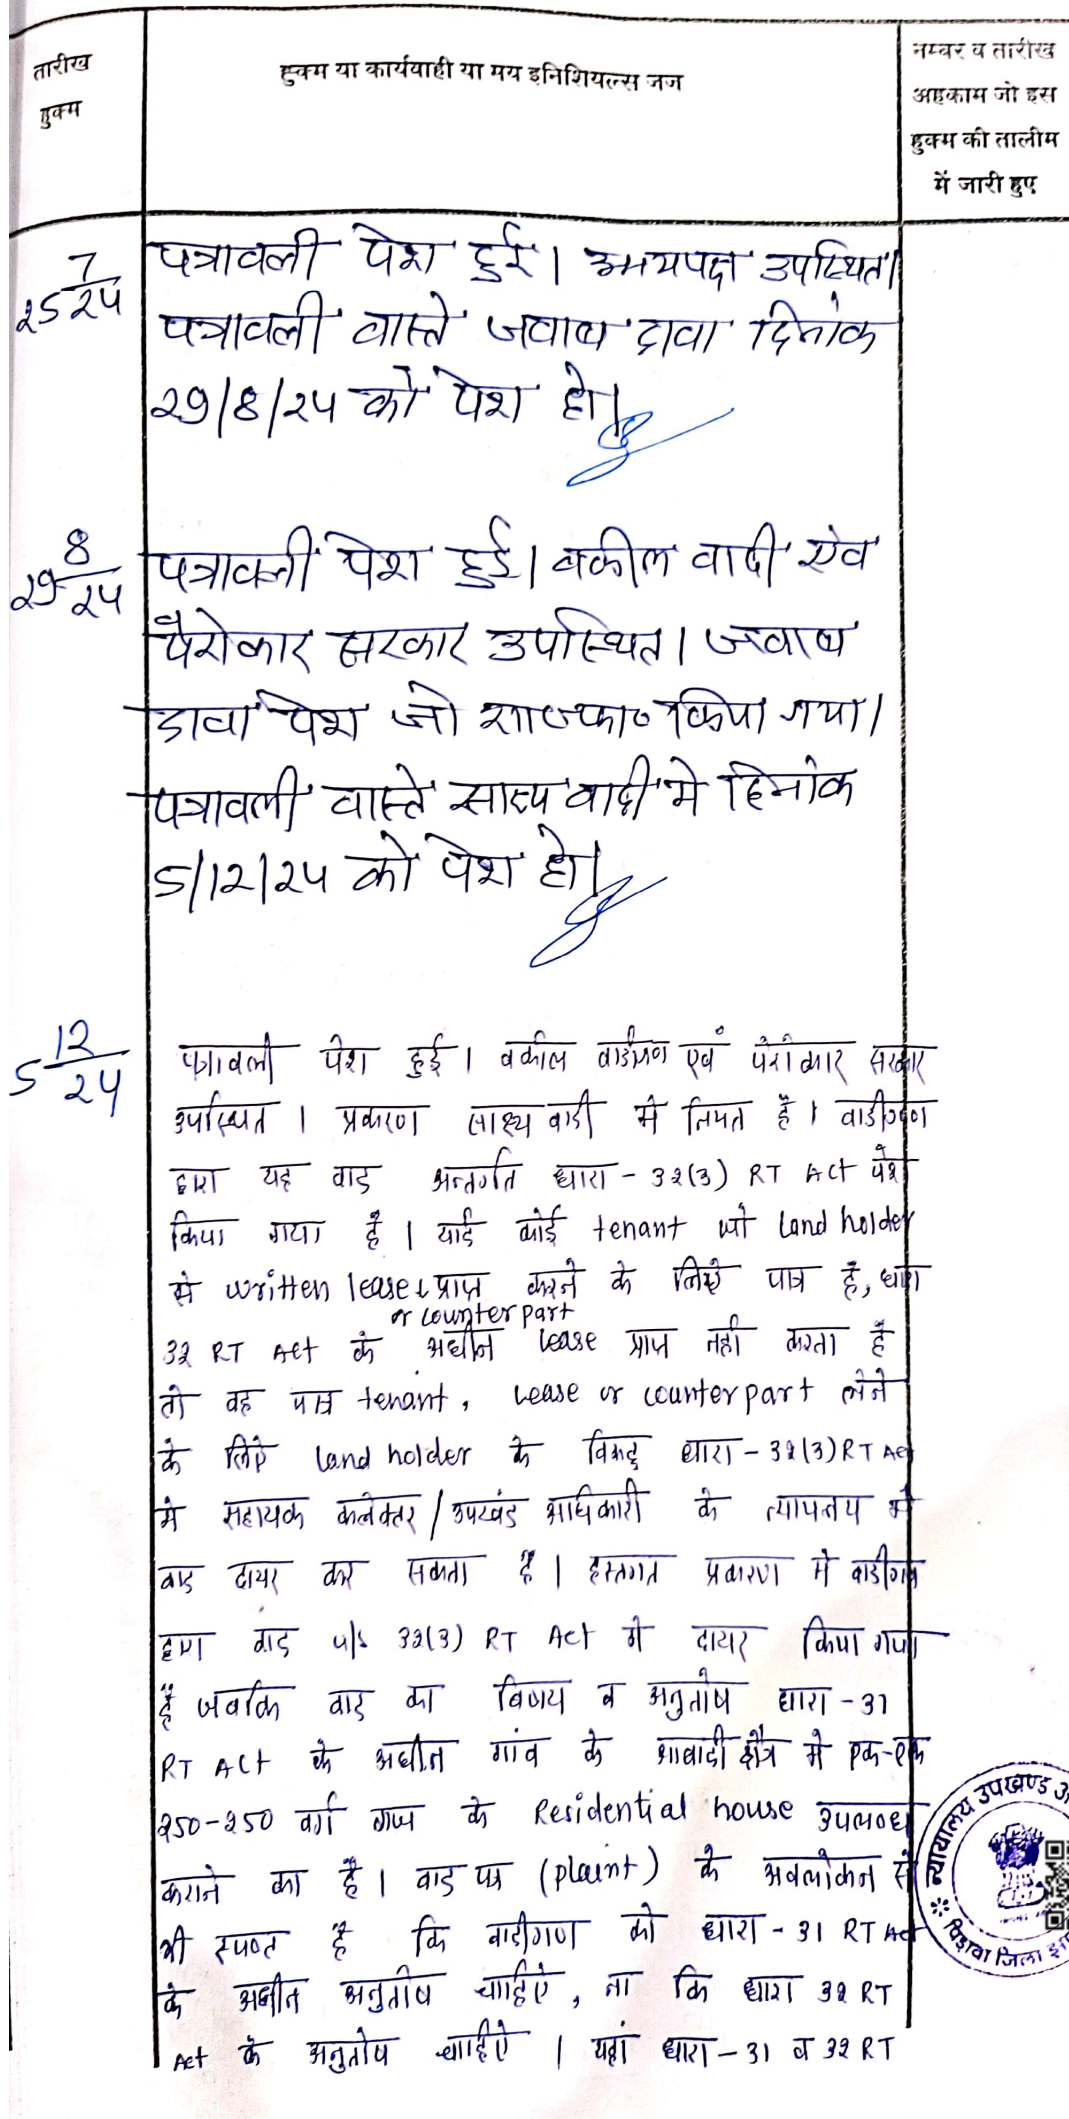 तारीख
हुक्म
हुक्म या कार्यवाही या मय इनिशियल्स जज
नम्बर व तारीख
अहकाम जो इस
हुक्म की तालीम
में जारी हुए
25 7/24
पत्रावली पेश हुई। उभयपक्ष उपस्थित।
पत्रावली वास्ते जवाब दावा दिनांक
29/8/24 को पेश हो।
29 8/24
पत्रावली पेश हुई। वकील वादी एंव
पैरोकार सरकार उपस्थित। जवाब
दावा पेश जो शा०फा० किया गया।
पत्रावली वास्ते साक्ष्य वादी मे दिनांक
5/12/24 को पेश हो।
5 12/24
पत्रावली पेश हुई। वकील वादीगण एवं पैरोकार सरकार
उपस्थित। प्रकरण साक्ष्य वादी में नियत है। वादीगण
द्वारा यह वाद अन्तर्गत धारा - 32(3) RT Act पेश
किया गया है। यदि कोई tenant जो Land holder
से written lease प्राप्त करने के लिए पात्र है, धारा
or counterpart
32 RT Act के अधीन lease प्राप्त नहीं करता है
तो वह पात्र tenant, lease or counterpart लेने
के लिए Land holder के विरूद्ध धारा - 32(3) RT Act
मे सहायक कलेक्टर / उपखंड अधिकारी के न्यायालय में
वाद दायर कर सकता है। हस्तगत प्रकरण में वादीगण
द्वारा वाद u/s 32(3) RT Act में दायर किया गया
है जबकि वाद का विषय व अनुतोष धारा - 31
RT Act के अधीन गांव के आबादी क्षेत्र मे एक-एक
250-250 वर्ग गज के Residential house उपलब्ध
कराने का है। वाद पत्र (plaint) के अवलोकन से
भी स्पष्ट है कि वादीगण को धारा - 31 RT Act
के अधीन अनुतोष चाहिऐ, ना कि धारा 32 RT
Act के अनुतोष चाहिऐ। यहां धारा - 31 व 32 RT
न्यायालय उपखण्ड अ
पिड़ावा जिला झा